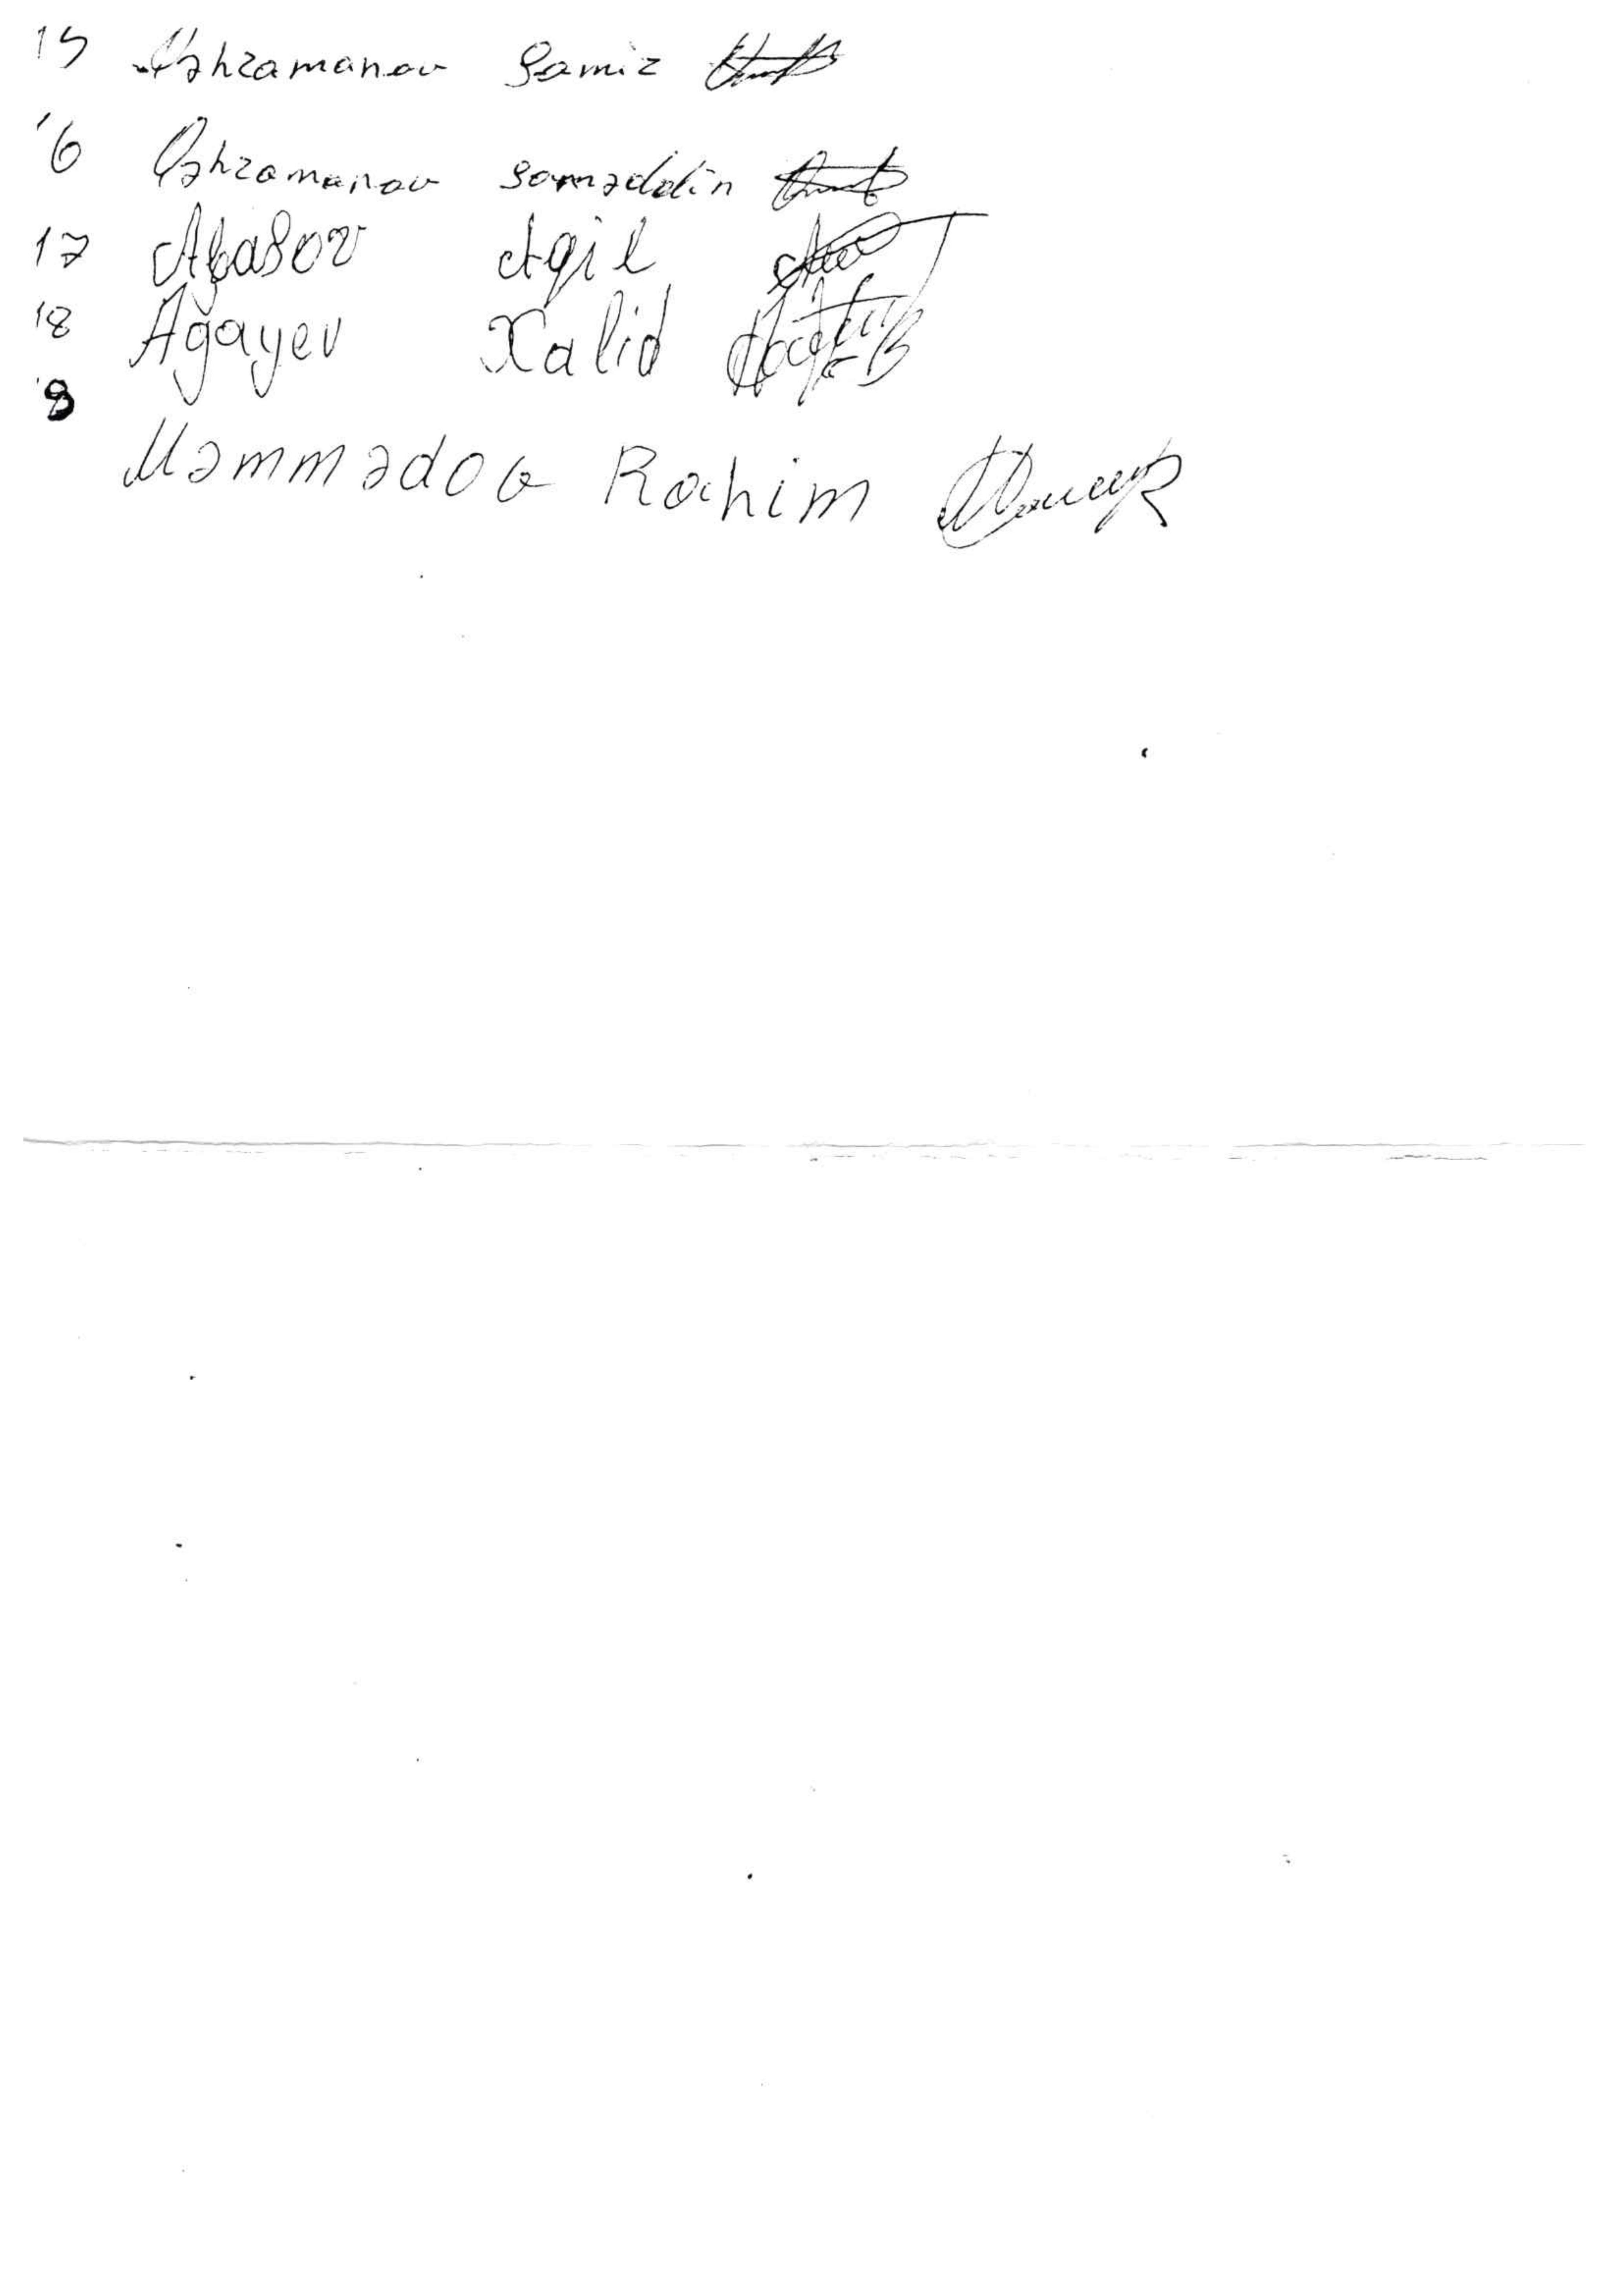 15 Qəhramanov Samir
16 Qəhramanov Saməddin
17 Abasov Aqil
18 Ağayev Xalid
Məmmədov Rahim